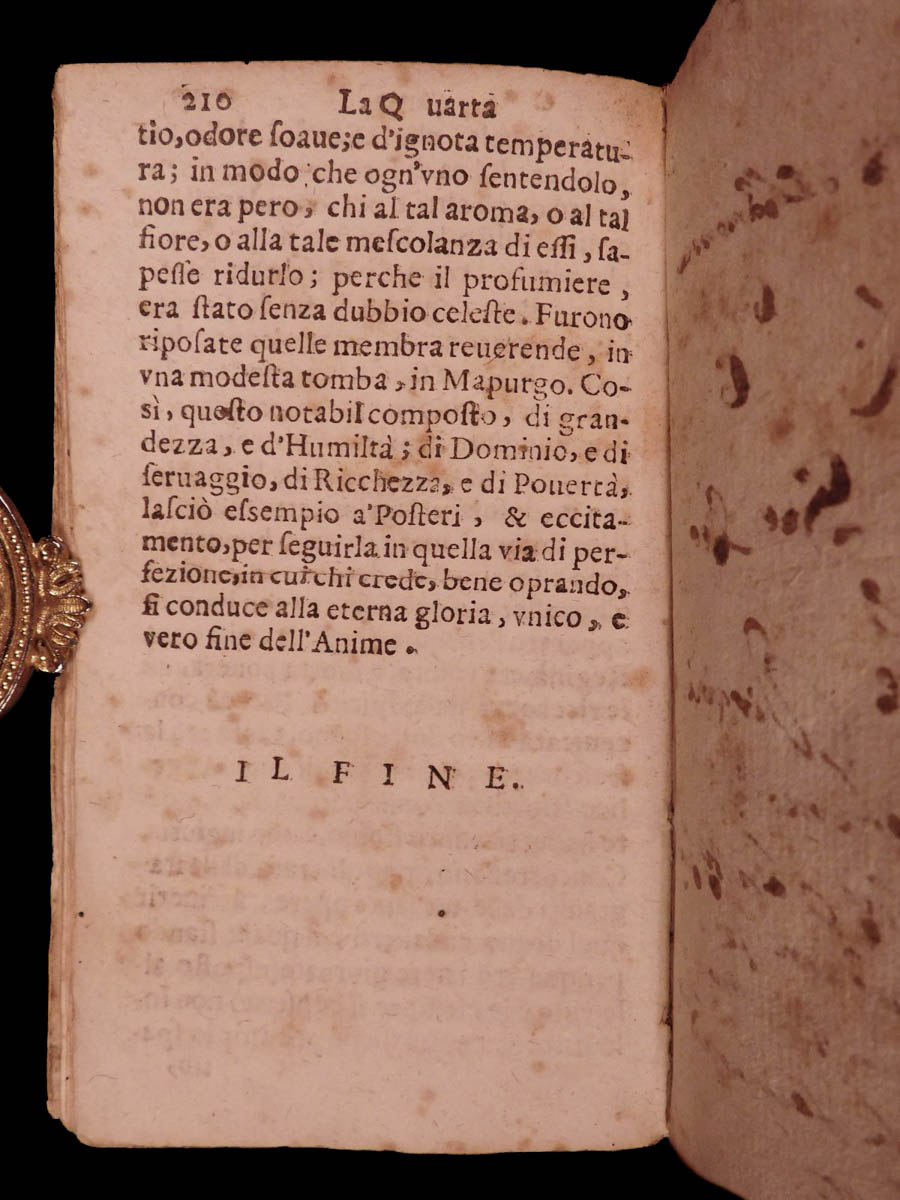 210 La Q uarta
tio, odore ſoaue; e d'ignota temperatu-
ra; in modo che ogn'vno ſentendolo,
non era pero, chi al tal aroma, o al tal
fiore, o alla tale meſcolanza di eſſi, ſa-
peſſe ridurlo; perche il profumiere,
era ſtato ſenza dubbio celeſte. Furono
ripoſate quelle membra reuerende, in
vna modeſta tomba, in Mapurgo. Co-
sì, queſto notabil compoſto, di gran-
dezza, e d'Humiltà; di Dominio, e di
ſeruaggio, di Ricchezza, e di Pouertà,
laſciò eſsempio a'Poſteri, & eccita-
mento, per ſeguirla in quella via di per-
fezione, in cui chi crede, bene oprando,
ſi conduce alla eterna gloria, vnico, e
vero fine dell'Anime.
IL FINE.